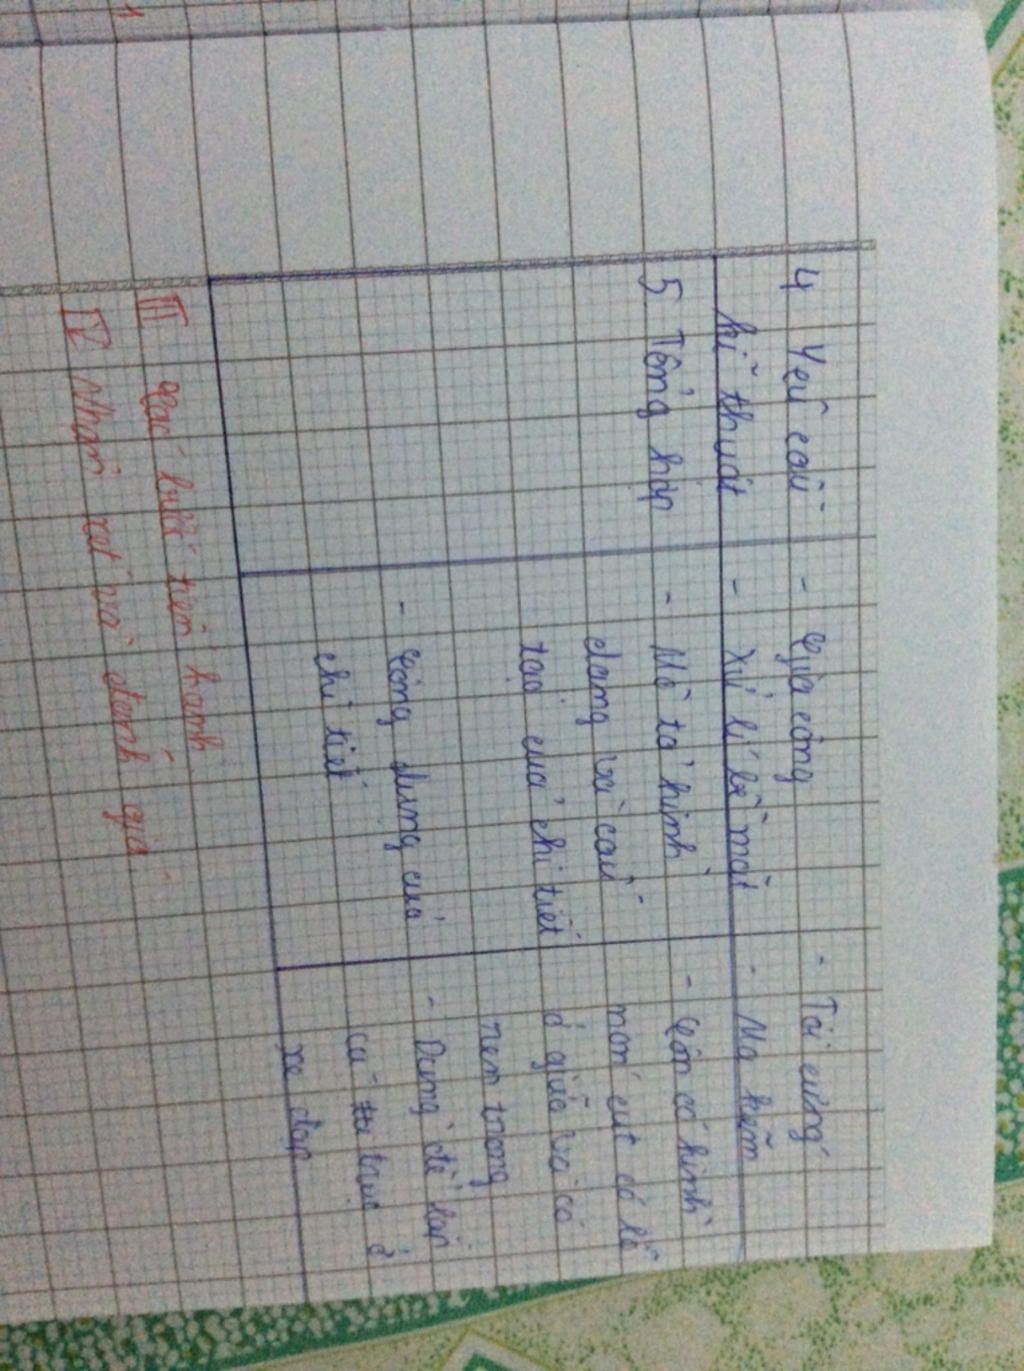 4 Yêu cầu - Gia công - Tôi cứng
kĩ thuật - Xử lí bề mặt - Mạ kẽm
5 Tổng hợp - Mô tả hình - Côn có hình
dạng và cấu nón cụt có lỗ
tạo của chi tiết ở giữa và có
ren trong
- Công dụng của - Dùng để lắp
chi tiết trục ở
xe đạp
III Các bước tiến hành
IV Nhận xét và đánh giá